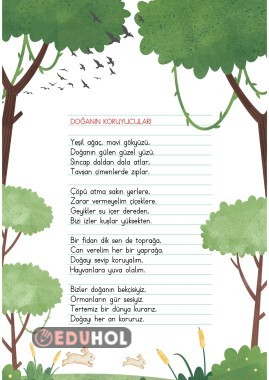 DOĞANIN KORUYUCULARI
Yeşil ağaç, mavi gökyüzü.
Doğanın gülen güzel yüzü.
Sincap daldan dala atlar,
Tavşan çimenlerde zıplar.
Çöpü atma sakın yerlere,
Zarar vermeyelim çiçeklere.
Geyikler su içer dereden,
Bizi izler kuşlar yüksekten.
Bir fidan dik sen de toprağa,
Can verelim her bir yaprağa.
Doğayı sevip koruyalım,
Hayvanlara yuva olalım.
Bizler doğanın bekçisiyiz,
Ormanların gür sesiyiz.
Tertemiz bir dünya kurarız,
Doğayı her an koruruz.
EDUHOL